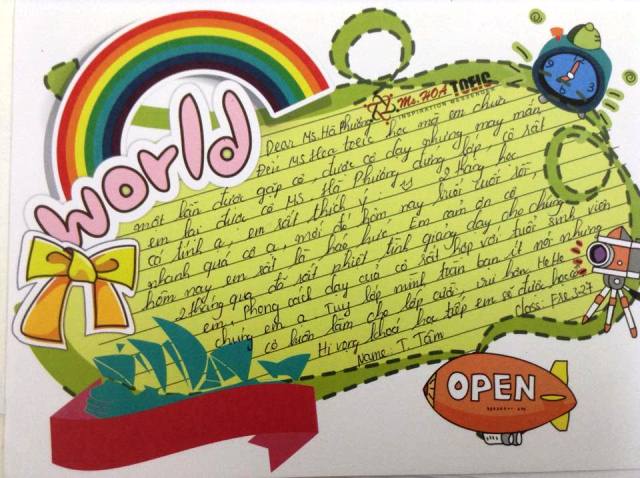 world
Ms. HOA TOEIC
INSPIRATION MESSENGER
Dear Ms. Hà Phương
Đến Ms Hoa toeic học mà em chưa
một lần được gặp cô được cô dạy nhưng may mắn
em lại được cô MS Hà Phương đứng lớp, cô rất
cá tính ạ, em rất thích ý! 2 tháng học
nhanh quá cô ạ, mới đó hôm nay buổi cuối rồi,
hôm nay em rất là háo hức. Em cảm ơn cô
2 tháng qua đã rất nhiệt tình giảng dạy cho chúng
em, phong cách dạy của cô rất hợp với tuổi sinh viên
chúng em ạ Tuy lớp mình trầm bạn ít nói nhưng
cô luôn làm cho lớp cười, vui hơn. HeHe
Hi vọng khoá học tiếp em sẽ được học cô
Name: T. Tâm
class:
OPEN